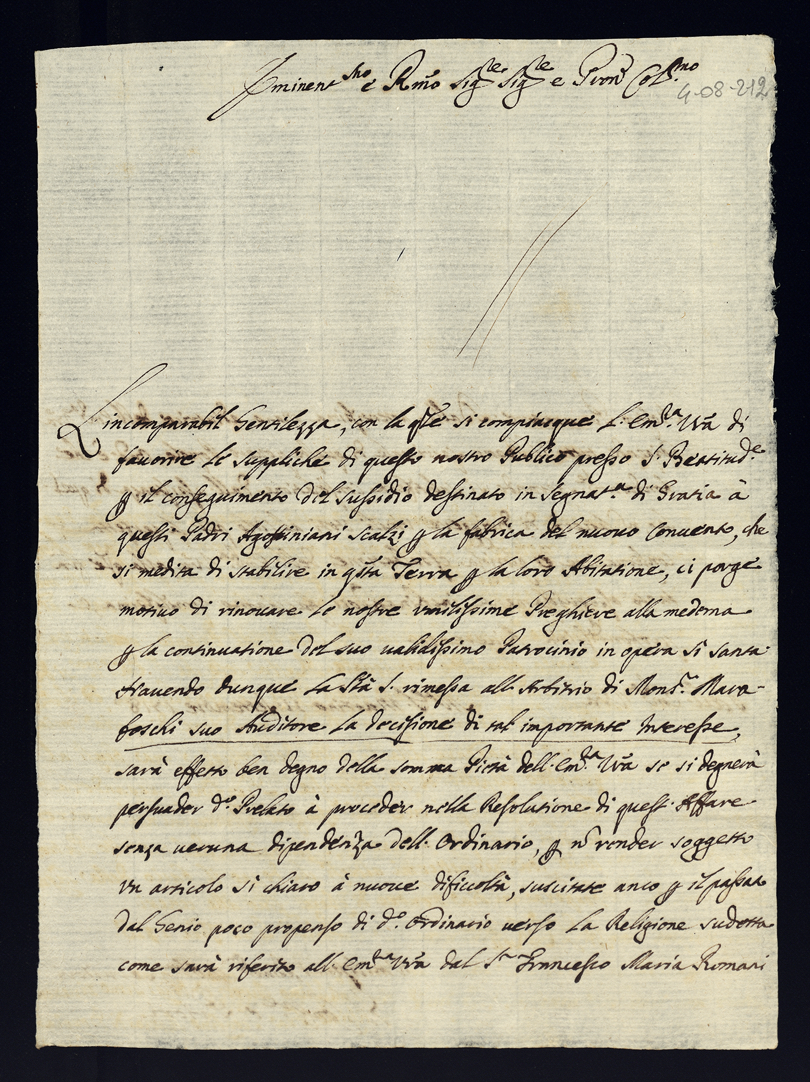 Eminent.mo e R.mo Sig.re Sig.re e Pron Col.mo
4-08-212
L'incomparabil Gentilezza, con la qle si compiacque l'Em.za Vra di
favorire le suppliche di questo nostro Publico presso S. Beatitud.e
p il conseguimento del sussidio destinato in Segnat.ra di Gratia à
questi Padri Agostiniani Scalzi p la fabrica del nuovo Convento, che
si medita di stabilire in qsta Terra p la loro Abitatione, ci porge
motivo di rinovare le nostre umilissime Preghiere alla medema
p la continuatione del suo validissimo Patrocinio in opera sì santa.
Havendo dunque la Stà S. rimessa all'Arbitrio di Mons.r Mara-
foschi suo Auditore la decisione di tal importante Interesse,
sarà effetto ben degno della somma Pietà dell'Em.za Vra se si degnerà
persuader d.o Prelato à proceder nella Resolutione di quest'Affare
senza veruna dipendenza dell'Ordinario, p nō render soggetto
un articolo sì chiaro à nuove difficoltà, suscitate anco p il passato
dal Genio poco propenso di d.o Ordinario verso la Religione sudetta
come sarà riferito all'Em.za Vra dal S.r Francesco Maria Romani